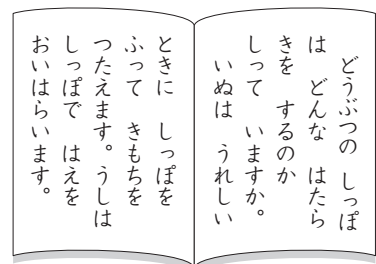 どうぶつの しっぽ
は どんな はたら
きを するのか
しって いますか。
いぬは うれしい
ときに しっぽを
ふって きもちを
つたえます。うしは
しっぽで はえを
おいはらいます。